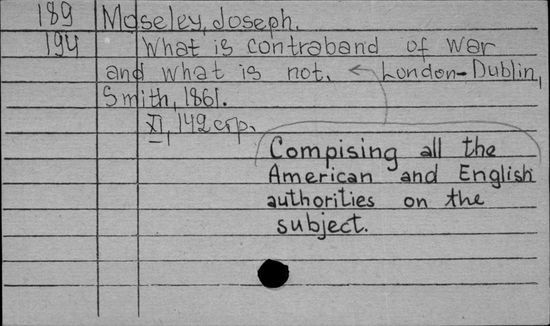 189 Moseley, Joseph.
194 What is contraband of war
and what is not. London-Dublin,
Smith, 1861.
XI, 142 стр.
Compising all the
American and English
authorities on the
subject.